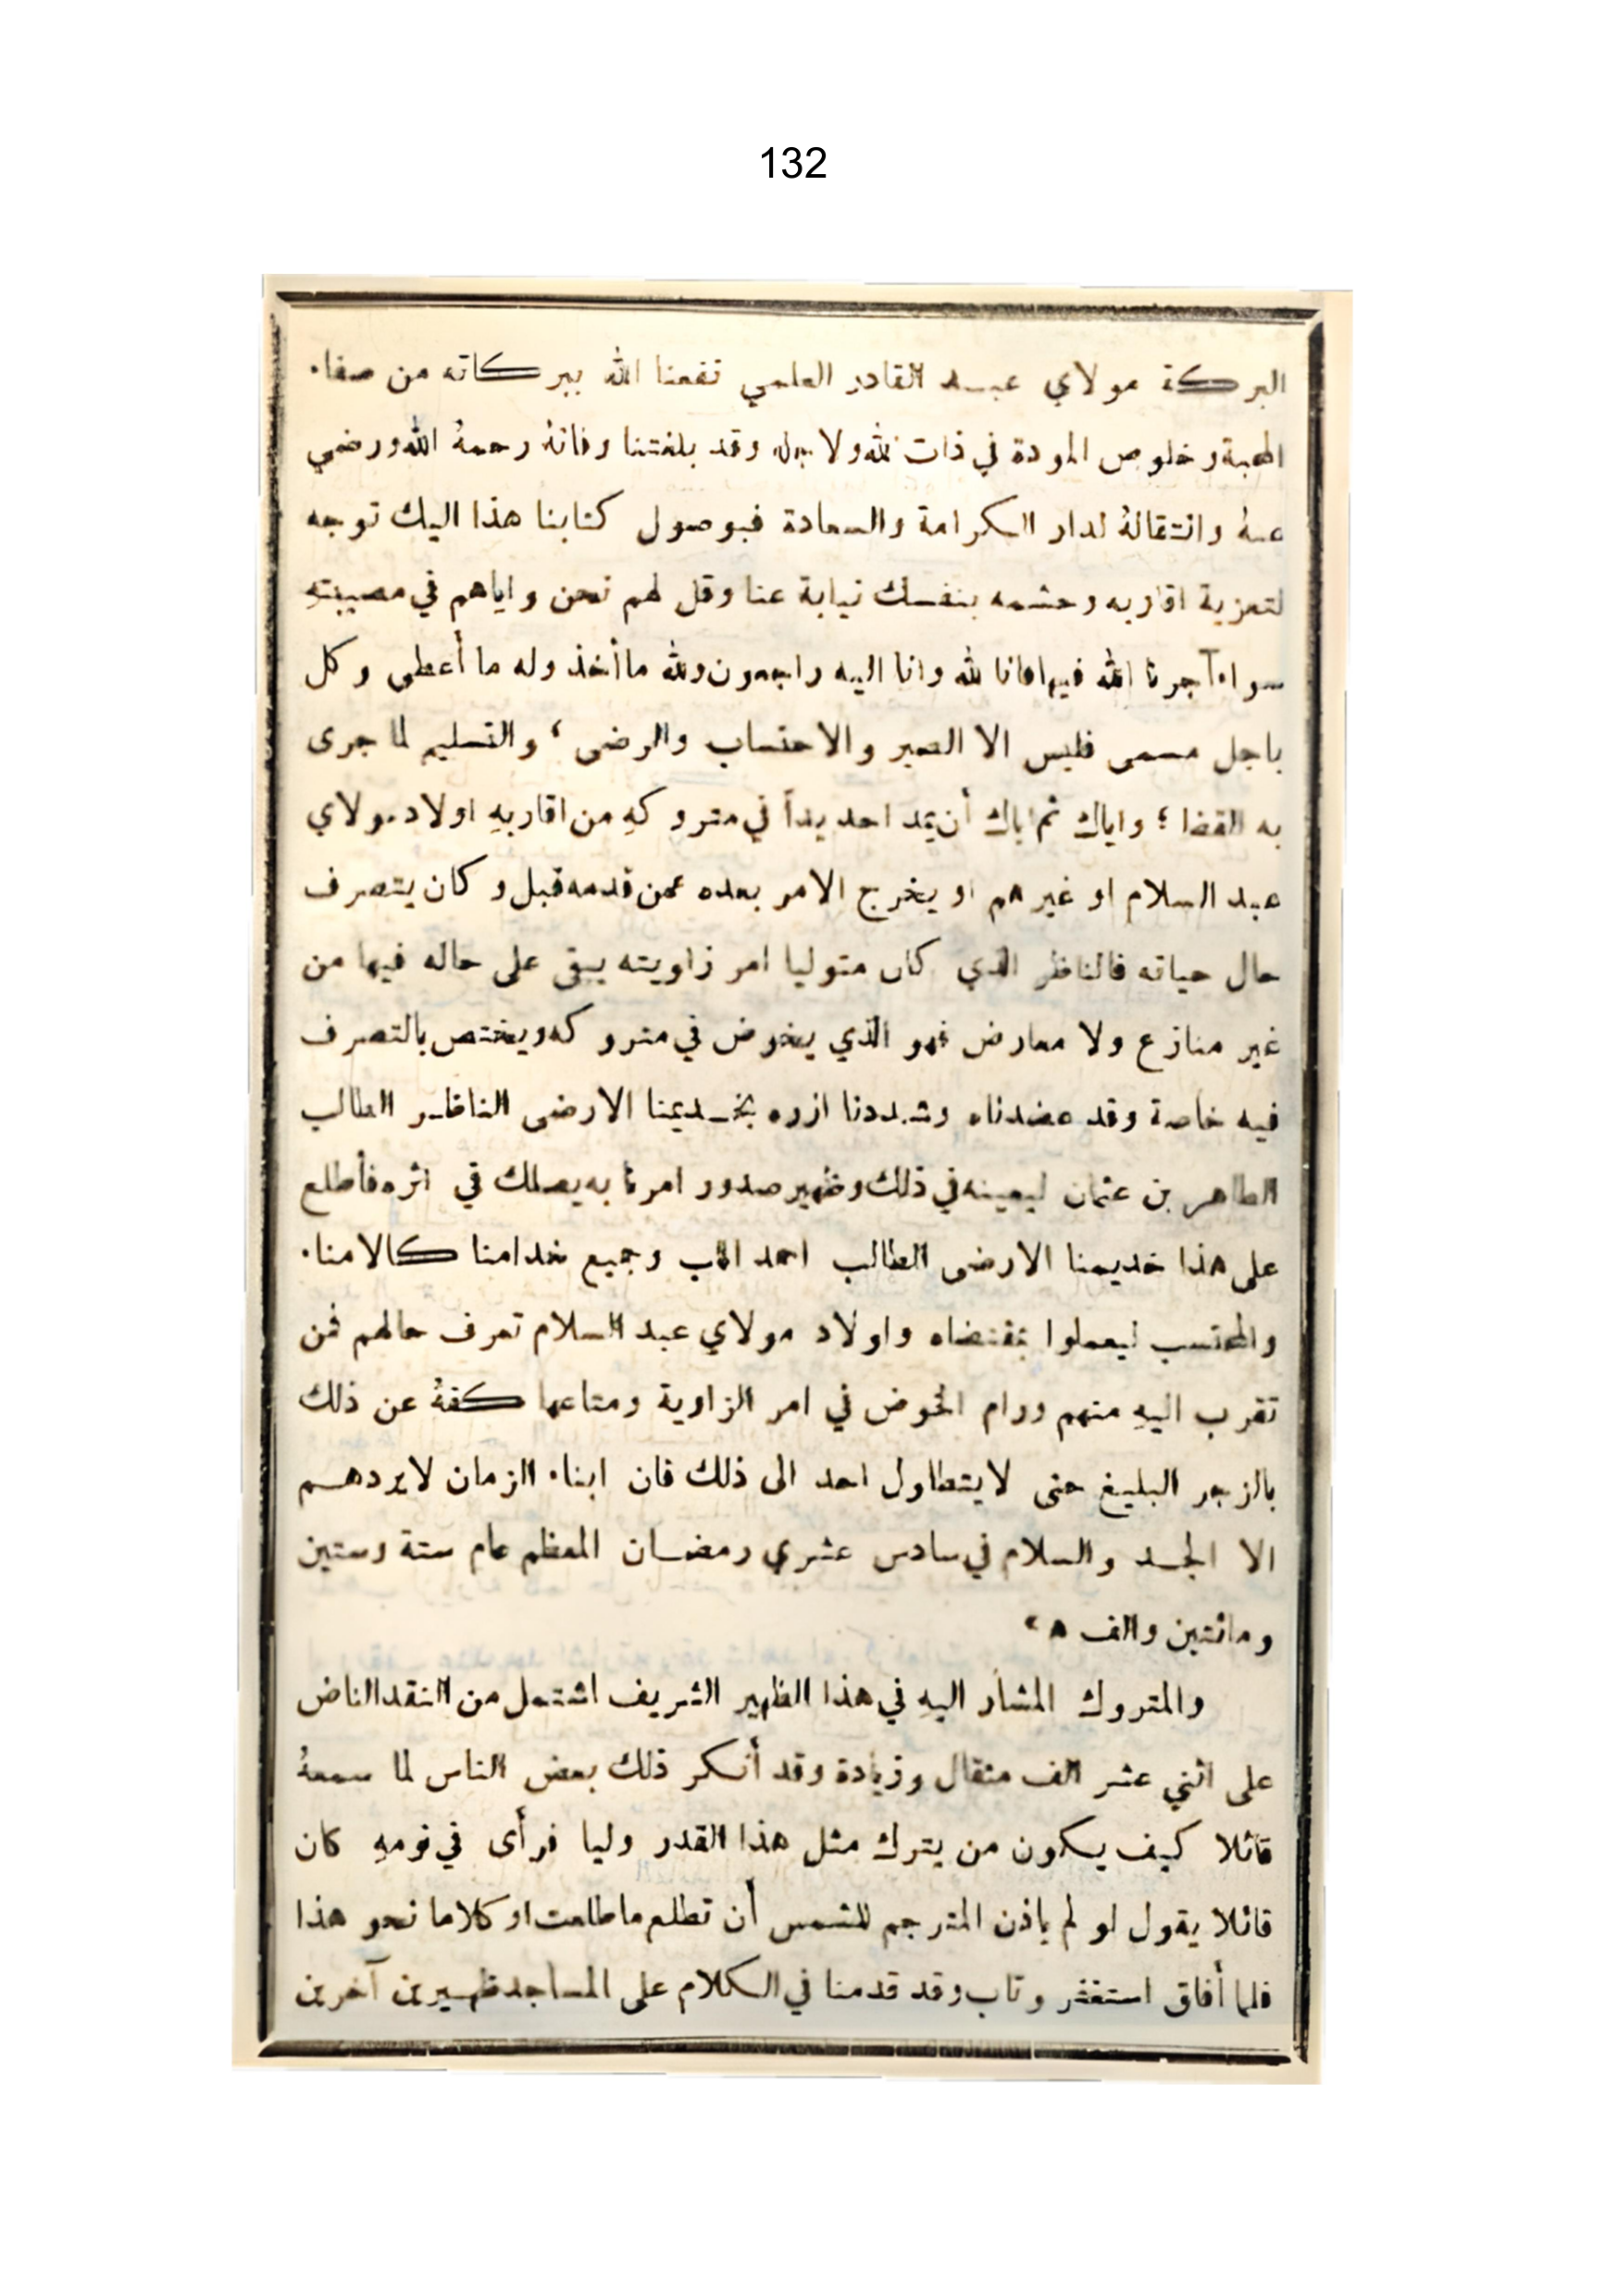 132
البركة مولاي عبد القادر العلمي نفعنا الله ببركاته من صفاء
المحبة وخلوص المودة في ذات الله ولاجله وقد بلغتنا وفاته رحمهُ الله ورضي
عنهُ وانتقالهُ لدار الكرامة والسعادة فبوصول كتابنا هذا اليك توجه
لتعزية اقاربه وحشمه بنفسك نيابة عنا وقل لهم نحن واياهم في مصيبتهِ
سواء آجرنا الله فيها فانا لله وانا اليه راجعون ولله ما أخذ وله ما أعطى وكل
باجل مسمى فليس الا الصبر والاحتساب والرضى ، والتسليم لما جرى
به القضا ؛ واياك ثم اياك أن يمد احد يداً في متروكهِ من اقاربهِ اولاد مولاي
عبد السلام او غيرهم او يخرج الامر بعده عمن قدمه قبل وكان يتصرف
حال حياته فالناظر الذي كان متوليا امر زاويته يبقى على حاله فيها من
غير منازع ولا معارض فهو الذي يخوض في متروكه ويختص بالتصرف
فيه خاصة وقد عضدناه وشددنا ازره بخديمنا الارضى الناظر الطالب
الطاهر بن عثمان ليعينه في ذلك وظهير صدور امرنا به يصلك في اثره فأطلع
على هذا خديمنا الارضى الطالب احمد الاب وجميع خدامنا كالامناء
والمحتسب ليعملوا بمقتضاه واولاد مولاي عبد السلام تعرف حالهم فمن
تقرب اليهِ منهم ورام الخوض في امر الزاوية ومتاعها كفهُ عن ذلك
بالزجر البليغ حتى لا يتطاول احد الى ذلك فان ابناء الزمان لا يردهم
الا الجد والسلام في سادس عشري رمضان المعظم عام ستة وستين
ومائتين والف ه»
والمتروك المشار اليهِ في هذا الظهير الشريف اشتمل من النقد الناض
على اثني عشر الف مثقال وزيادة وقد أنكر ذلك بعض الناس لما سمعهُ
قائلا كيف يكون من يترك مثل هذا القدر وليا فرأى في نومهِ كان
قائلا يقول لو لم ياذن المترجم للشمس أن تطلع ما طلعت او كلاما نحو هذا
فلما أفاق استغفر وتاب وقد قدمنا في الكلام على المساجد ظهيرين آخرين